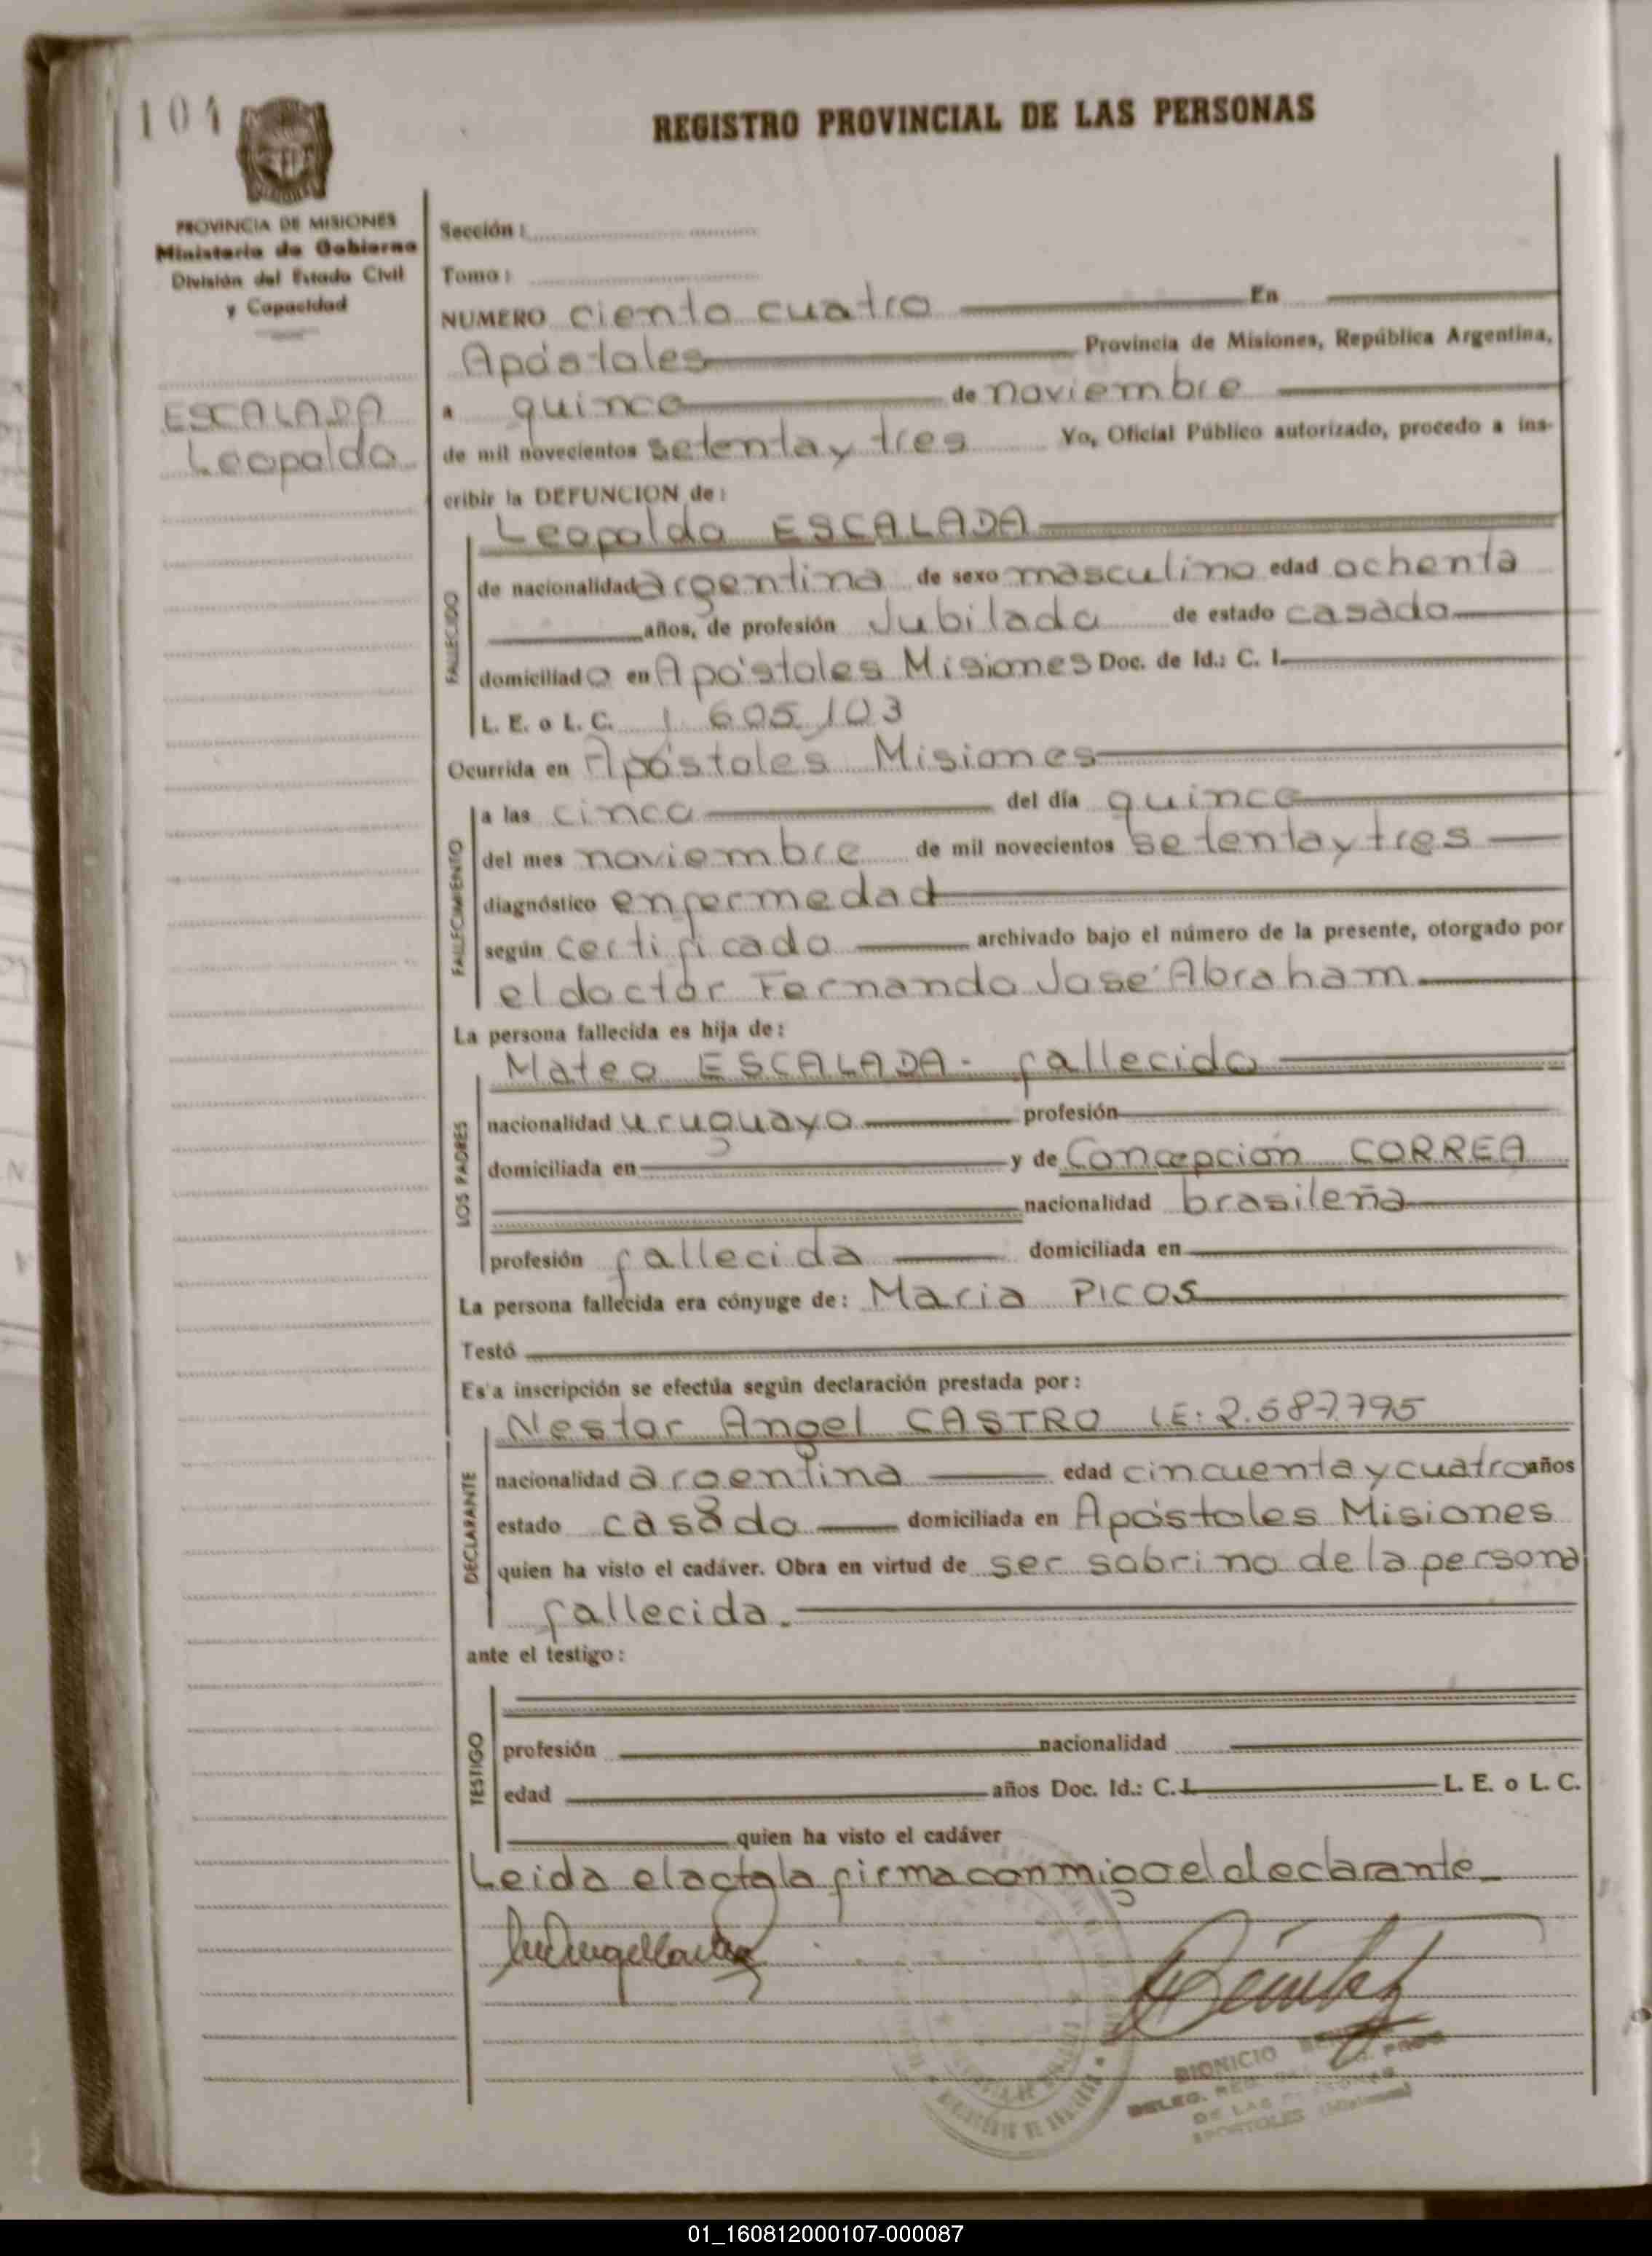 104
REGISTRO PROVINCIAL DE LAS PERSONAS
PROVINCIA DE MISIONES
Ministerio de Gobierno
División del Estado Civil
y Capacidad
ESCALADA
Leopoldo
Sección :
Tomo :
NUMERO ciento cuatro En
Apóstoles Provincia de Misiones, República Argentina,
a quince de noviembre
de mil novecientos setenta y tres Yo, Oficial Público autorizado, procedo a ins-
cribir la DEFUNCION de :
FALLECIDO
Leopoldo ESCALADA
de nacionalidad argentina de sexo masculino edad ochenta
años, de profesión Jubilado de estado casado
domiciliado en Apóstoles Misiones Doc. de Id.: C. I.
L. E. o L. C. 1 605 103
Ocurrida en Apóstoles Misiones
FALLECIMIENTO
a las cinco del día quince
del mes noviembre de mil novecientos setenta y tres
diagnóstico enfermedad
según certificado archivado bajo el número de la presente, otorgado por
el doctor Fernando José Abraham
La persona fallecida es hija de :
LOS PADRES
Mateo ESCALADA - fallecido
nacionalidad uruguayo profesión
domiciliada en y de Concepción CORREA
nacionalidad brasileña
profesión fallecida domiciliada en
La persona fallecida era cónyuge de : Maria PICOS
Testó
Es'a inscripción se efectúa según declaración prestada por :
DECLARANTE
Nestor Angel CASTRO LE: 2.587.795
nacionalidad argentina edad cincuenta y cuatro años
estado casado domiciliada en Apóstoles Misiones
quien ha visto el cadáver. Obra en virtud de ser sobrino de la persona
fallecida.
ante el testigo :
TESTIGO
profesión nacionalidad
edad años Doc. Id.: C. I. L. E. o L. C.
quien ha visto el cadáver
Leida el acta la firma conmigo el declarante
DIONICIO
DELEG.
DE LAS
APOSTOLES (Misiones)
01_160812000107-000087